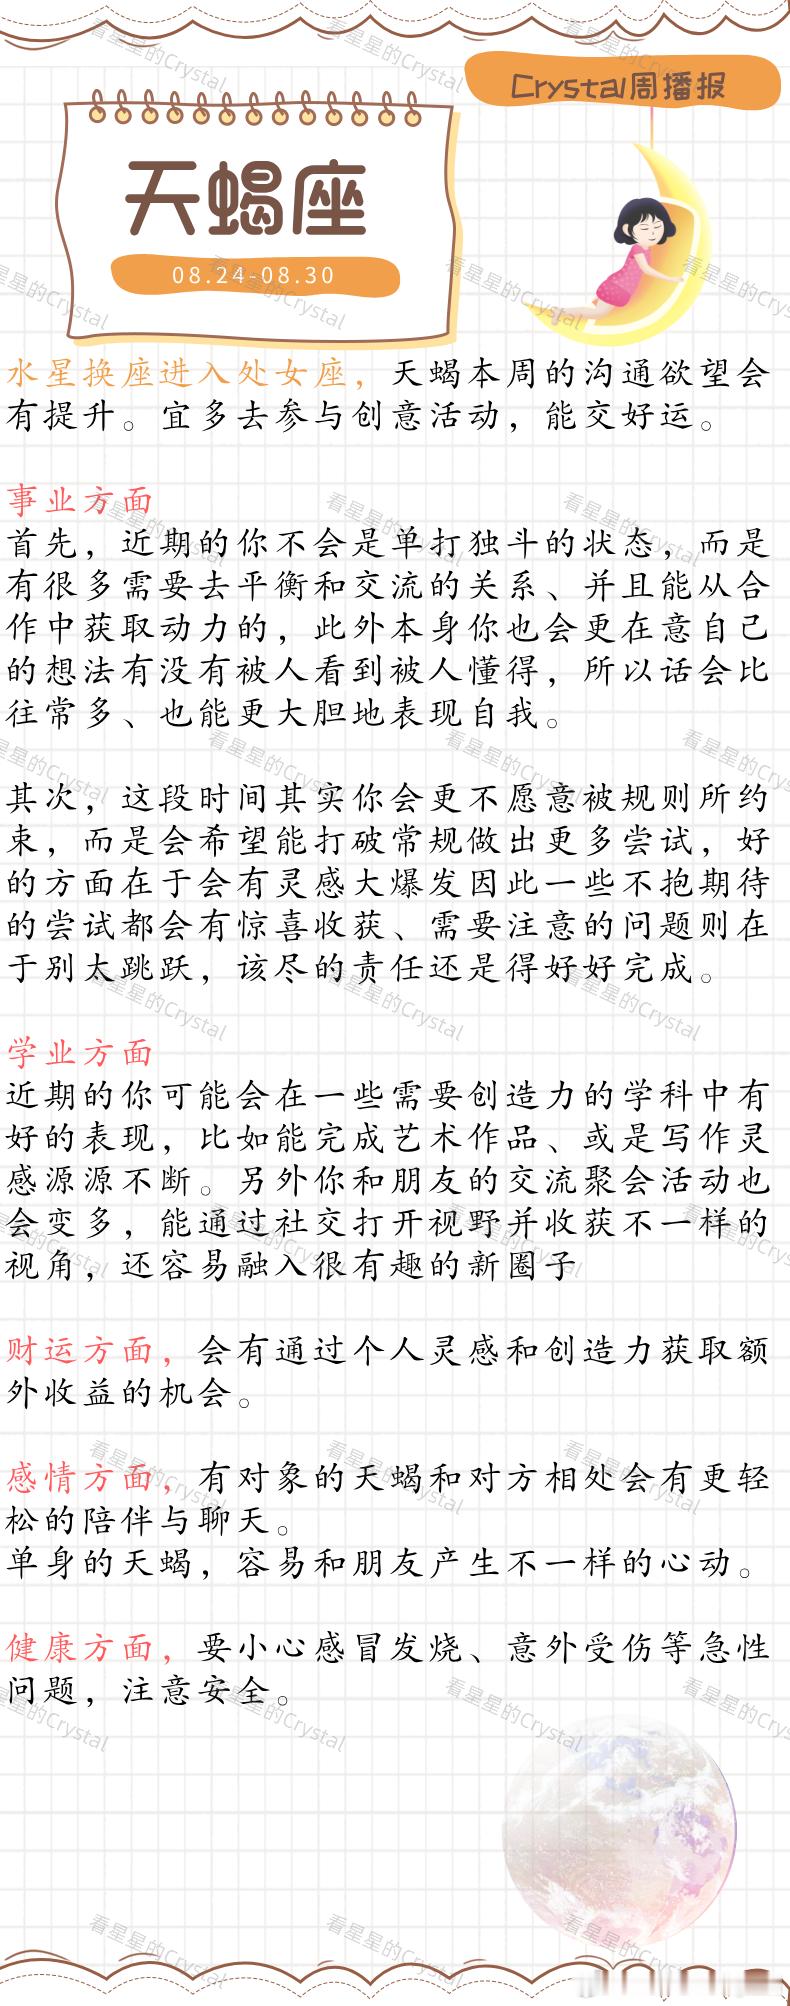 Crystal周播报
天蝎座
08.24-08.30
水星换座进入处女座，天蝎本周的沟通欲望会
有提升。宜多去参与创意活动，能交好运。
事业方面
首先，近期的你不会是单打独斗的状态，而是
有很多需要去平衡和交流的关系、并且能从合
作中获取动力的，此外本身你也会更在意自己
的想法有没有被人看到被人懂得，所以话会比
往常多、也能更大胆地表现自我。
其次，这段时间其实你会更不愿意被规则所约
束，而是会希望能打破常规做出更多尝试，好
的方面在于会有灵感大爆发因此一些不抱期待
的尝试都会有惊喜收获、需要注意的问题则在
于别太跳跃，该尽的责任还是得好好完成。
学业方面
近期的你可能会在一些需要创造力的学科中有
好的表现，比如能完成艺术作品、或是写作灵
感源源不断。另外你和朋友的交流聚会活动也
会变多，能通过社交打开视野并收获不一样的
视角，还容易融入很有趣的新圈子
财运方面，会有通过个人灵感和创造力获取额
外收益的机会。
感情方面，有对象的天蝎和对方相处会有更轻
松的陪伴与聊天。
单身的天蝎，容易和朋友产生不一样的心动。
健康方面，要小心感冒发烧、意外受伤等急性
问题，注意安全。
看星星的Crystal